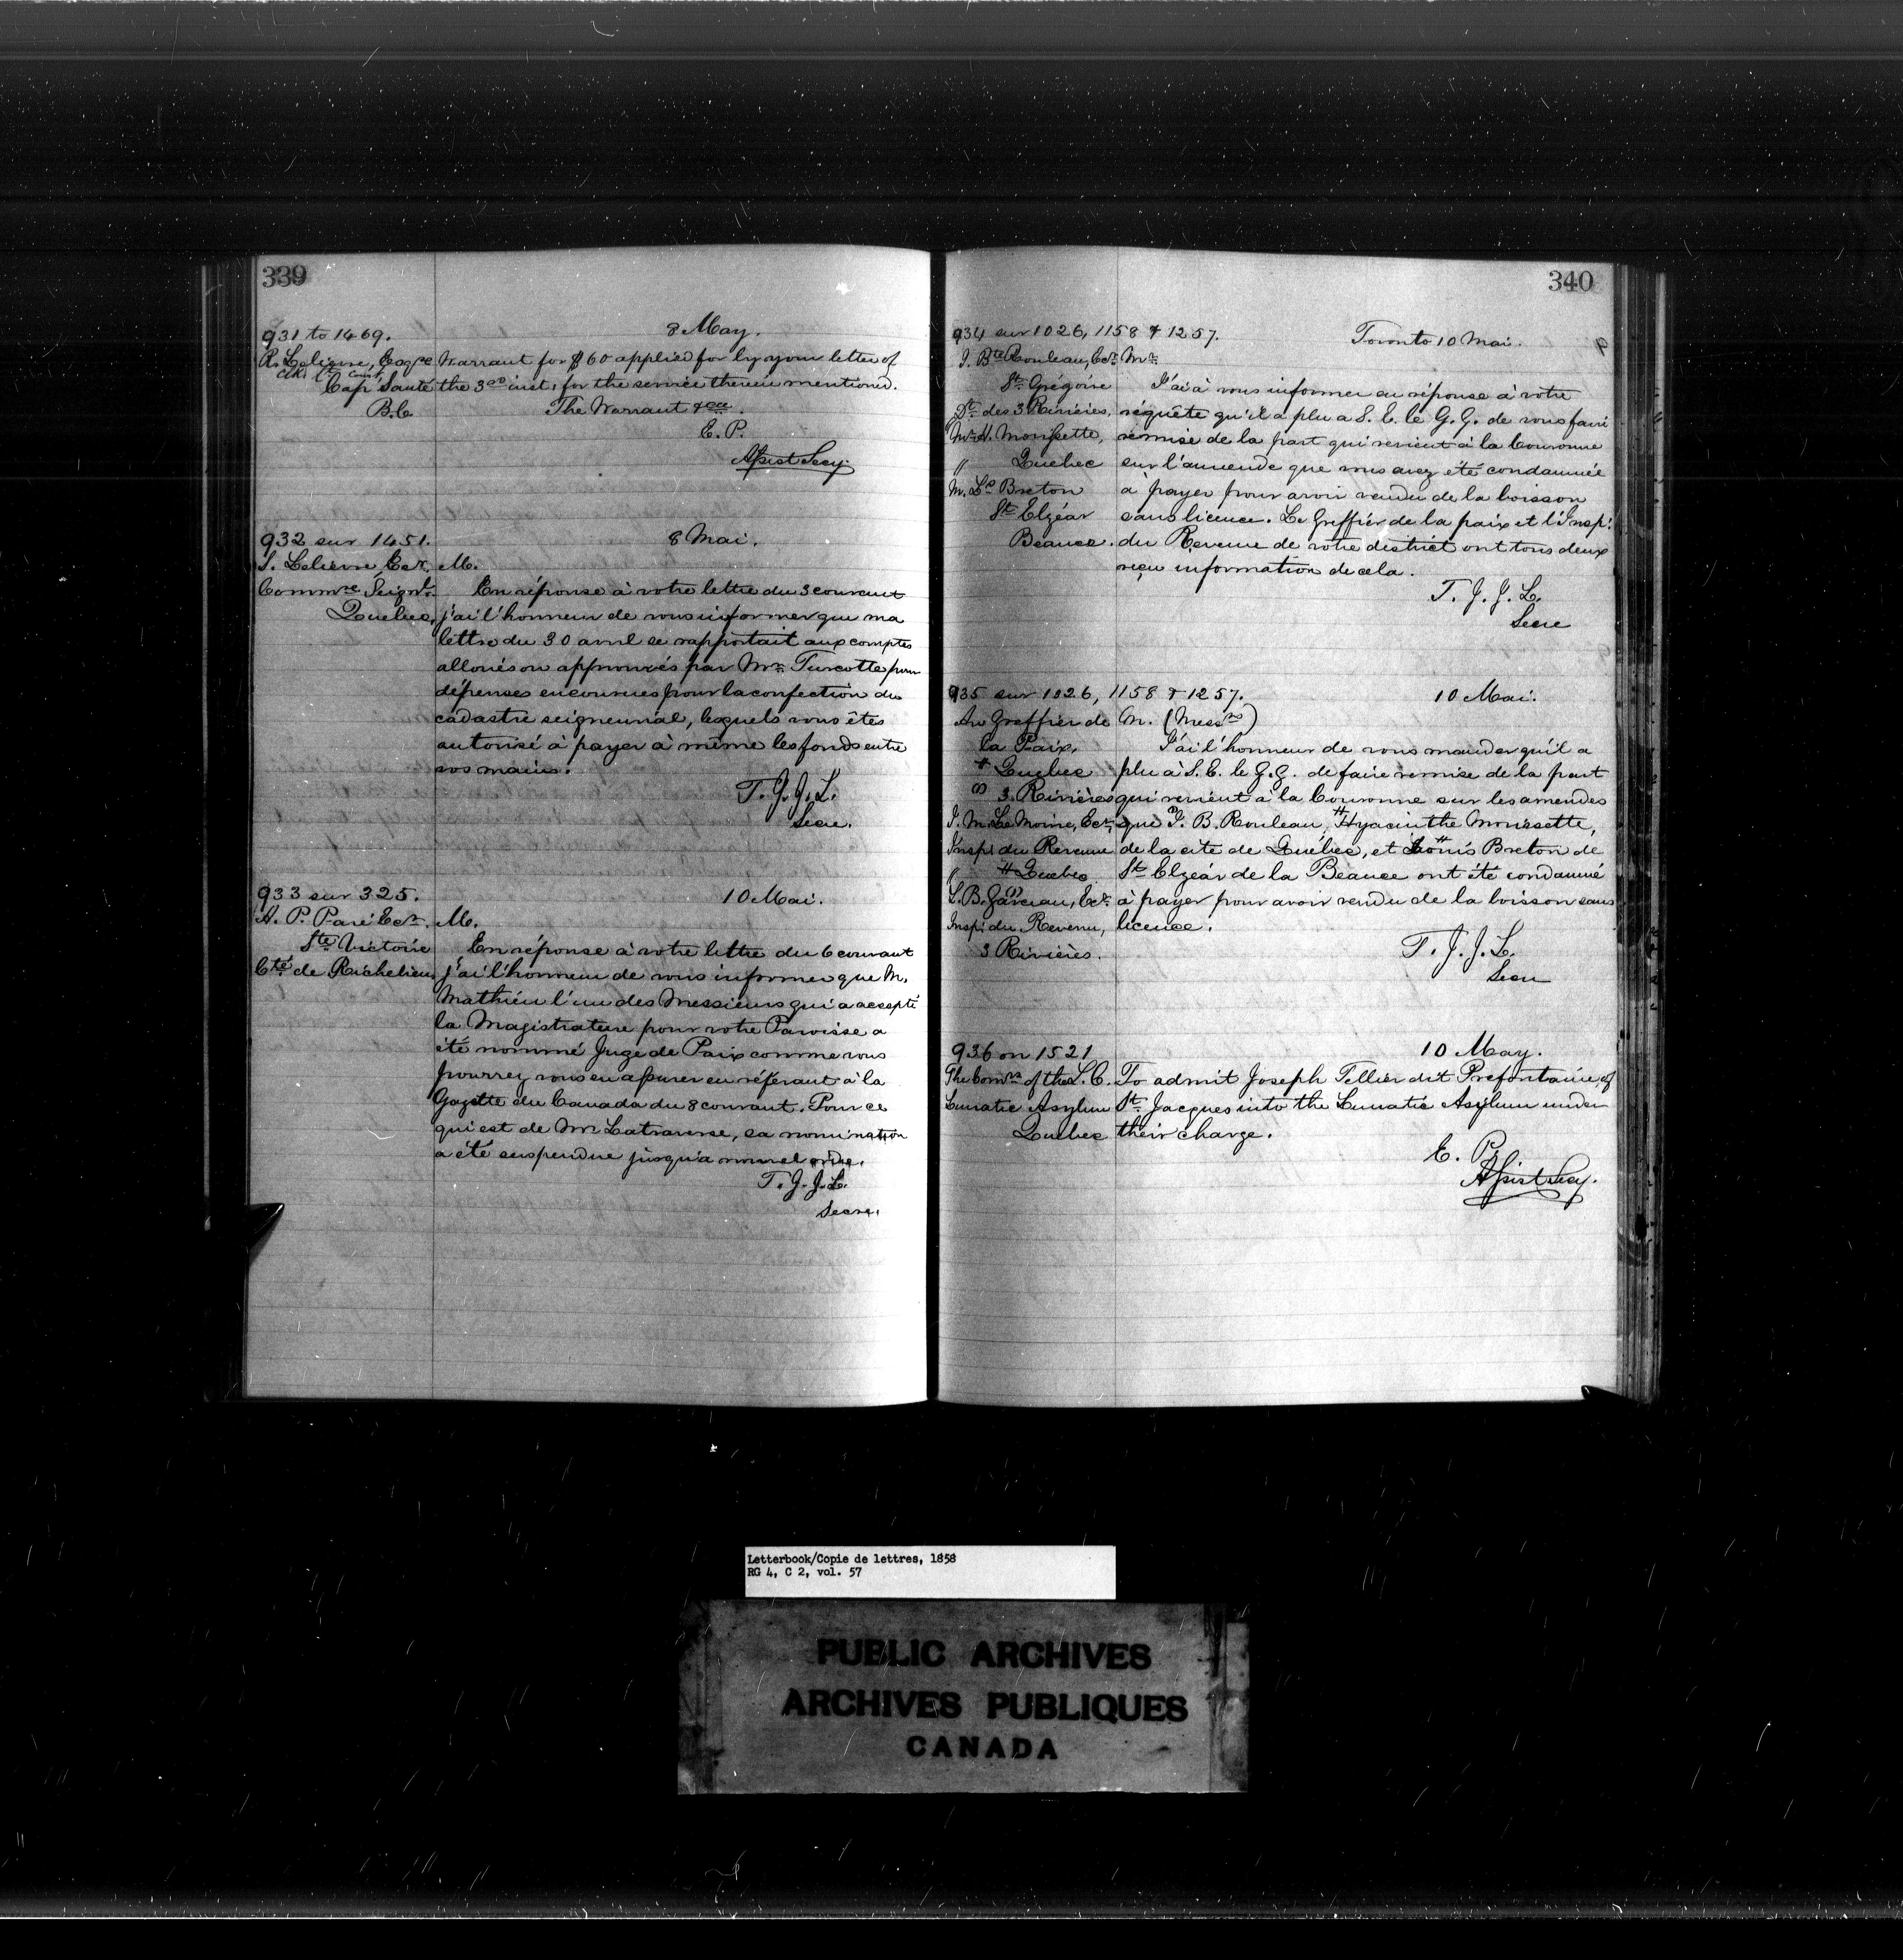 339
931 to 1469.
8 May.
R. Lelievre, Esqre Warrant for $60 applied for by your letter of
Clk. Ct. Court,
Cap Santé the 3rd inst: for the service therein mentioned.
The Warrant &ca.
E. P.
Assist Secy.
932 sur 1451.
8 Mai.
S. Lelievre, Ecr. M.
Commre Seignl. En réponse à votre lettre du 3 courant
Quebec, j'ai l'honneur de vous informer que ma
lettre du 30 avril se rapportait aux comptes
alloués ou approuvés par Mr. Turcotte pour
dépenses encourues pour la confection du
cadastre seigneurial, lesquels vous êtes
autorisé à payer à même les fonds entre
vos mains.
T. J. J. L.
Secre.
933 sur 325.
10 Mai.
A. P. Paré Ecr. M.
Ste Victoire En réponse à votre lettre du 6 courant
Cté de Richelieu, j'ai l'honneur de vous informer que M.
Mathieu l'un des Messieurs qui a accepté
la Magistrature pour votre Paroisse a
été nommé Juge de Paix comme vous
pourrez vous en assurer en référant à la
Gazette du Canada du 8 courant. Pour ce
qui est de Mr Latraverse, sa nomination
a été suspendue jusqu'à nouvel ordre.
T. J. J. L.
Secre.
340
934 sur 1026, 1158 & 1257.
Toronto 10 Mai.
J. Bte Rouleau, Ecr. Mr.
St. Grégoire J'ai à vous informer en réponse à votre
Dt. des 3 Rivières, réquête qu'il a plu a S. E. le G. G. de vous faire
Mr H. Morissette, remise de la part qui revient à la Couronne
" Quebec sur l'amende que vous avez été condamnée
M. Ls Breton à payer pour avoir vendu de la boisson
St Elzéar sans licence. Le Greffier de la paix et l'Inspr.
Beauce. du Revenue de votre district ont tous deux
reçu information de cela.
T. J. J. L.
Secre
935 sur 1026, 1158 & 1257.
10 Mai.
Au Greffier de M. (Messrs)
la Paix, J'ai l'honneur de vous mander qu'il a
# Quebec plu à S. E. le G. G. de faire remise de la part
3. Rivières qui revient à la Couronne sur les amendes
J. M. Le Moine, Ecr, que J. B. Rouleau, Hyacinthe Morissette,
Inspr du Revenue de la cité de Québec, et Louis Breton de
" # Quebec St Elzéar de la Beauce ont été condamné
L. B. Garceau, Ecr. à payer pour avoir vendu de la boisson sans
Inspr. du Revenu, licence.
3 Rivières.
T. J. J. L.
Secre
936 on 1521
10 May.
The Comrs of the L. C. To admit Joseph Tellier dit Prefontaine, of
Lunatic Asylum St. Jacques into the Lunatic Asylum under
Quebec their charge.
E. P.
Assist Secy.
Letterbook/Copie de lettres, 1858
RG 4, C 2, vol. 57
PUBLIC ARCHIVES
ARCHIVES PUBLIQUES
CANADA